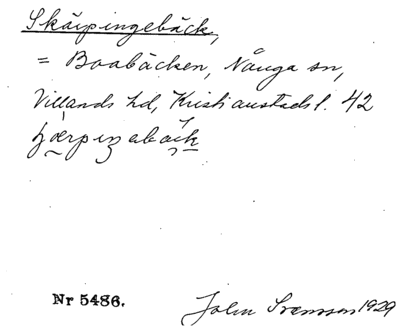 Skärpingebäck,
= Boabäcken, Nånga sn,
Villands hd, Kristianstads l. 42
Nr 5486.
John Svensson 1929